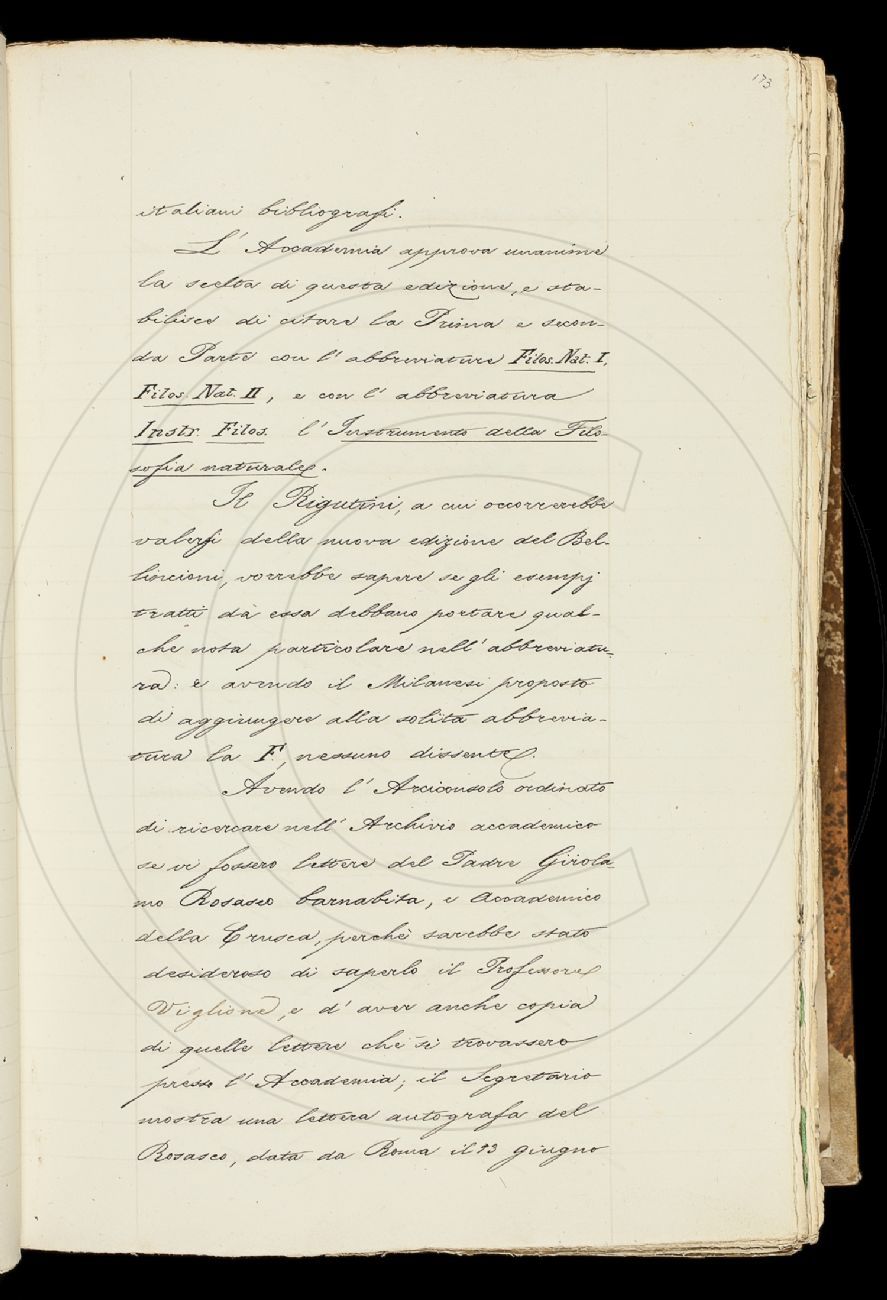 173
italiani bibliografi.
L' Accademia approva unanime
la scelta di questa edizione, e sta-
bilisce di citare la Prima e secon-
da Parte con l' abbreviature Filos. Nat. I,
Filos. Nat. II, e con l' abbreviatura
Instr. Filos. l' Instrumento della Filo-
sofia naturale.
Il Rigutini, a cui occorrerebbe
valersi della nuova edizione del Bel-
lincioni, vorrebbe sapere se gli esempj
tratti da essa debbano portare qual-
che nota particolare nell' abbreviatu-
ra: e avendo il Milanesi proposto
di aggiungere alla solita abbrevia-
tura la F., nessuno dissente.
Avendo l' Arciconsolo ordinato
di ricercare nell' Archivio accademico
se vi fossero lettere del Padre Girola-
mo Rosasco barnabita, e Accademico
della Crusca, perchè sarebbe stato
desideroso di saperlo il Professore
Viglione, e d' aver anche copia
di quelle lettere che si trovassero
presso l' Accademia; il Segretario
mostra una lettera autografa del
Rosasco, data da Roma il 13 giugno